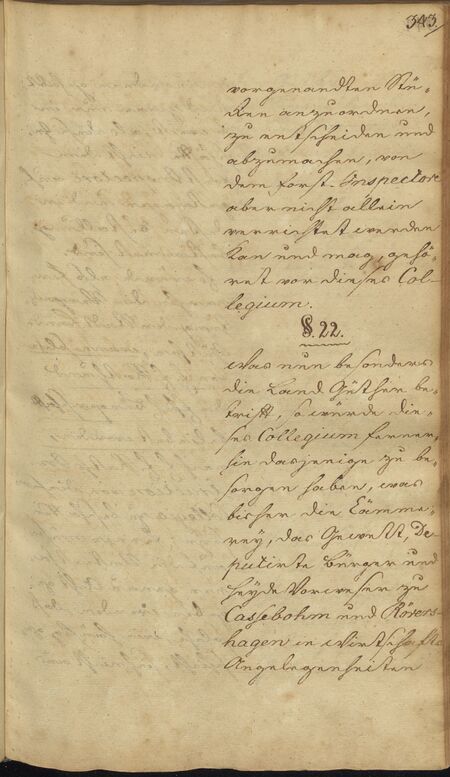 343.
vorgenandten Stü-
ken anzuordnen,
zu entscheiden und
abzumachen, von
dem Forst-Inspectore
aber nicht allein
verrichtet werden
kan und mag, gehö-
ret vor dieses Col-
legium.
§. 22.
Was nun besonders
die Land Güther be-
trift, so würde die-
ses Collegium ferner-
hin dasjenige zu be-
sorgen haben, was
bisher die Cämme-
rey, das Gewett, De-
putirte Bürger und
Heyde Vorweser zu
Cassebohm und Rövers-
hagen in Wirtschafts
Angelegenheiten